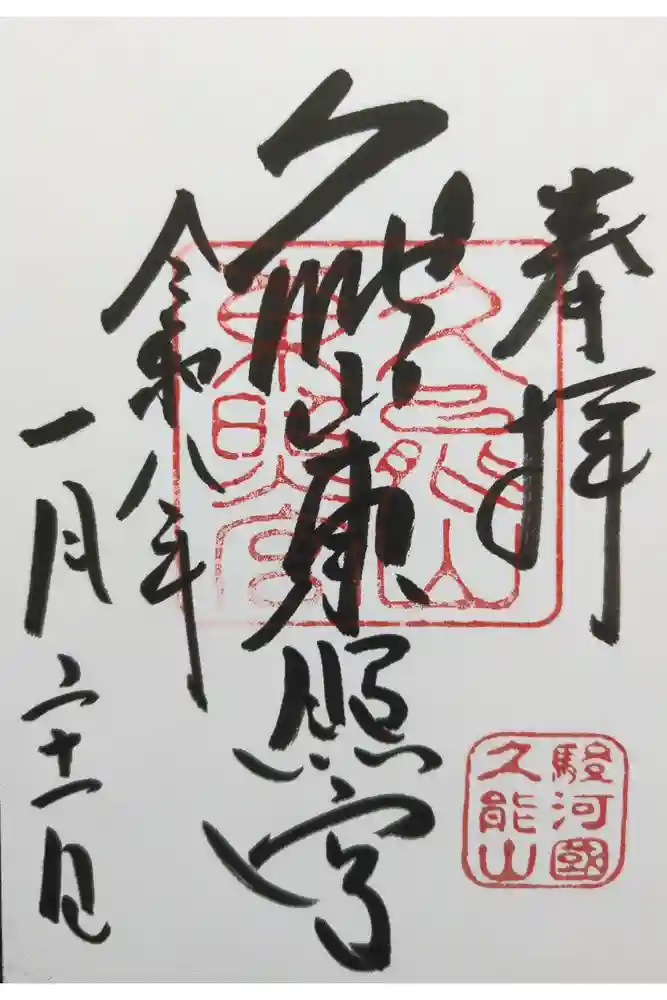 奉拝
久能山東照宮
令和八年
一月二十一日
久能山
東照宮
駿河國
久能山